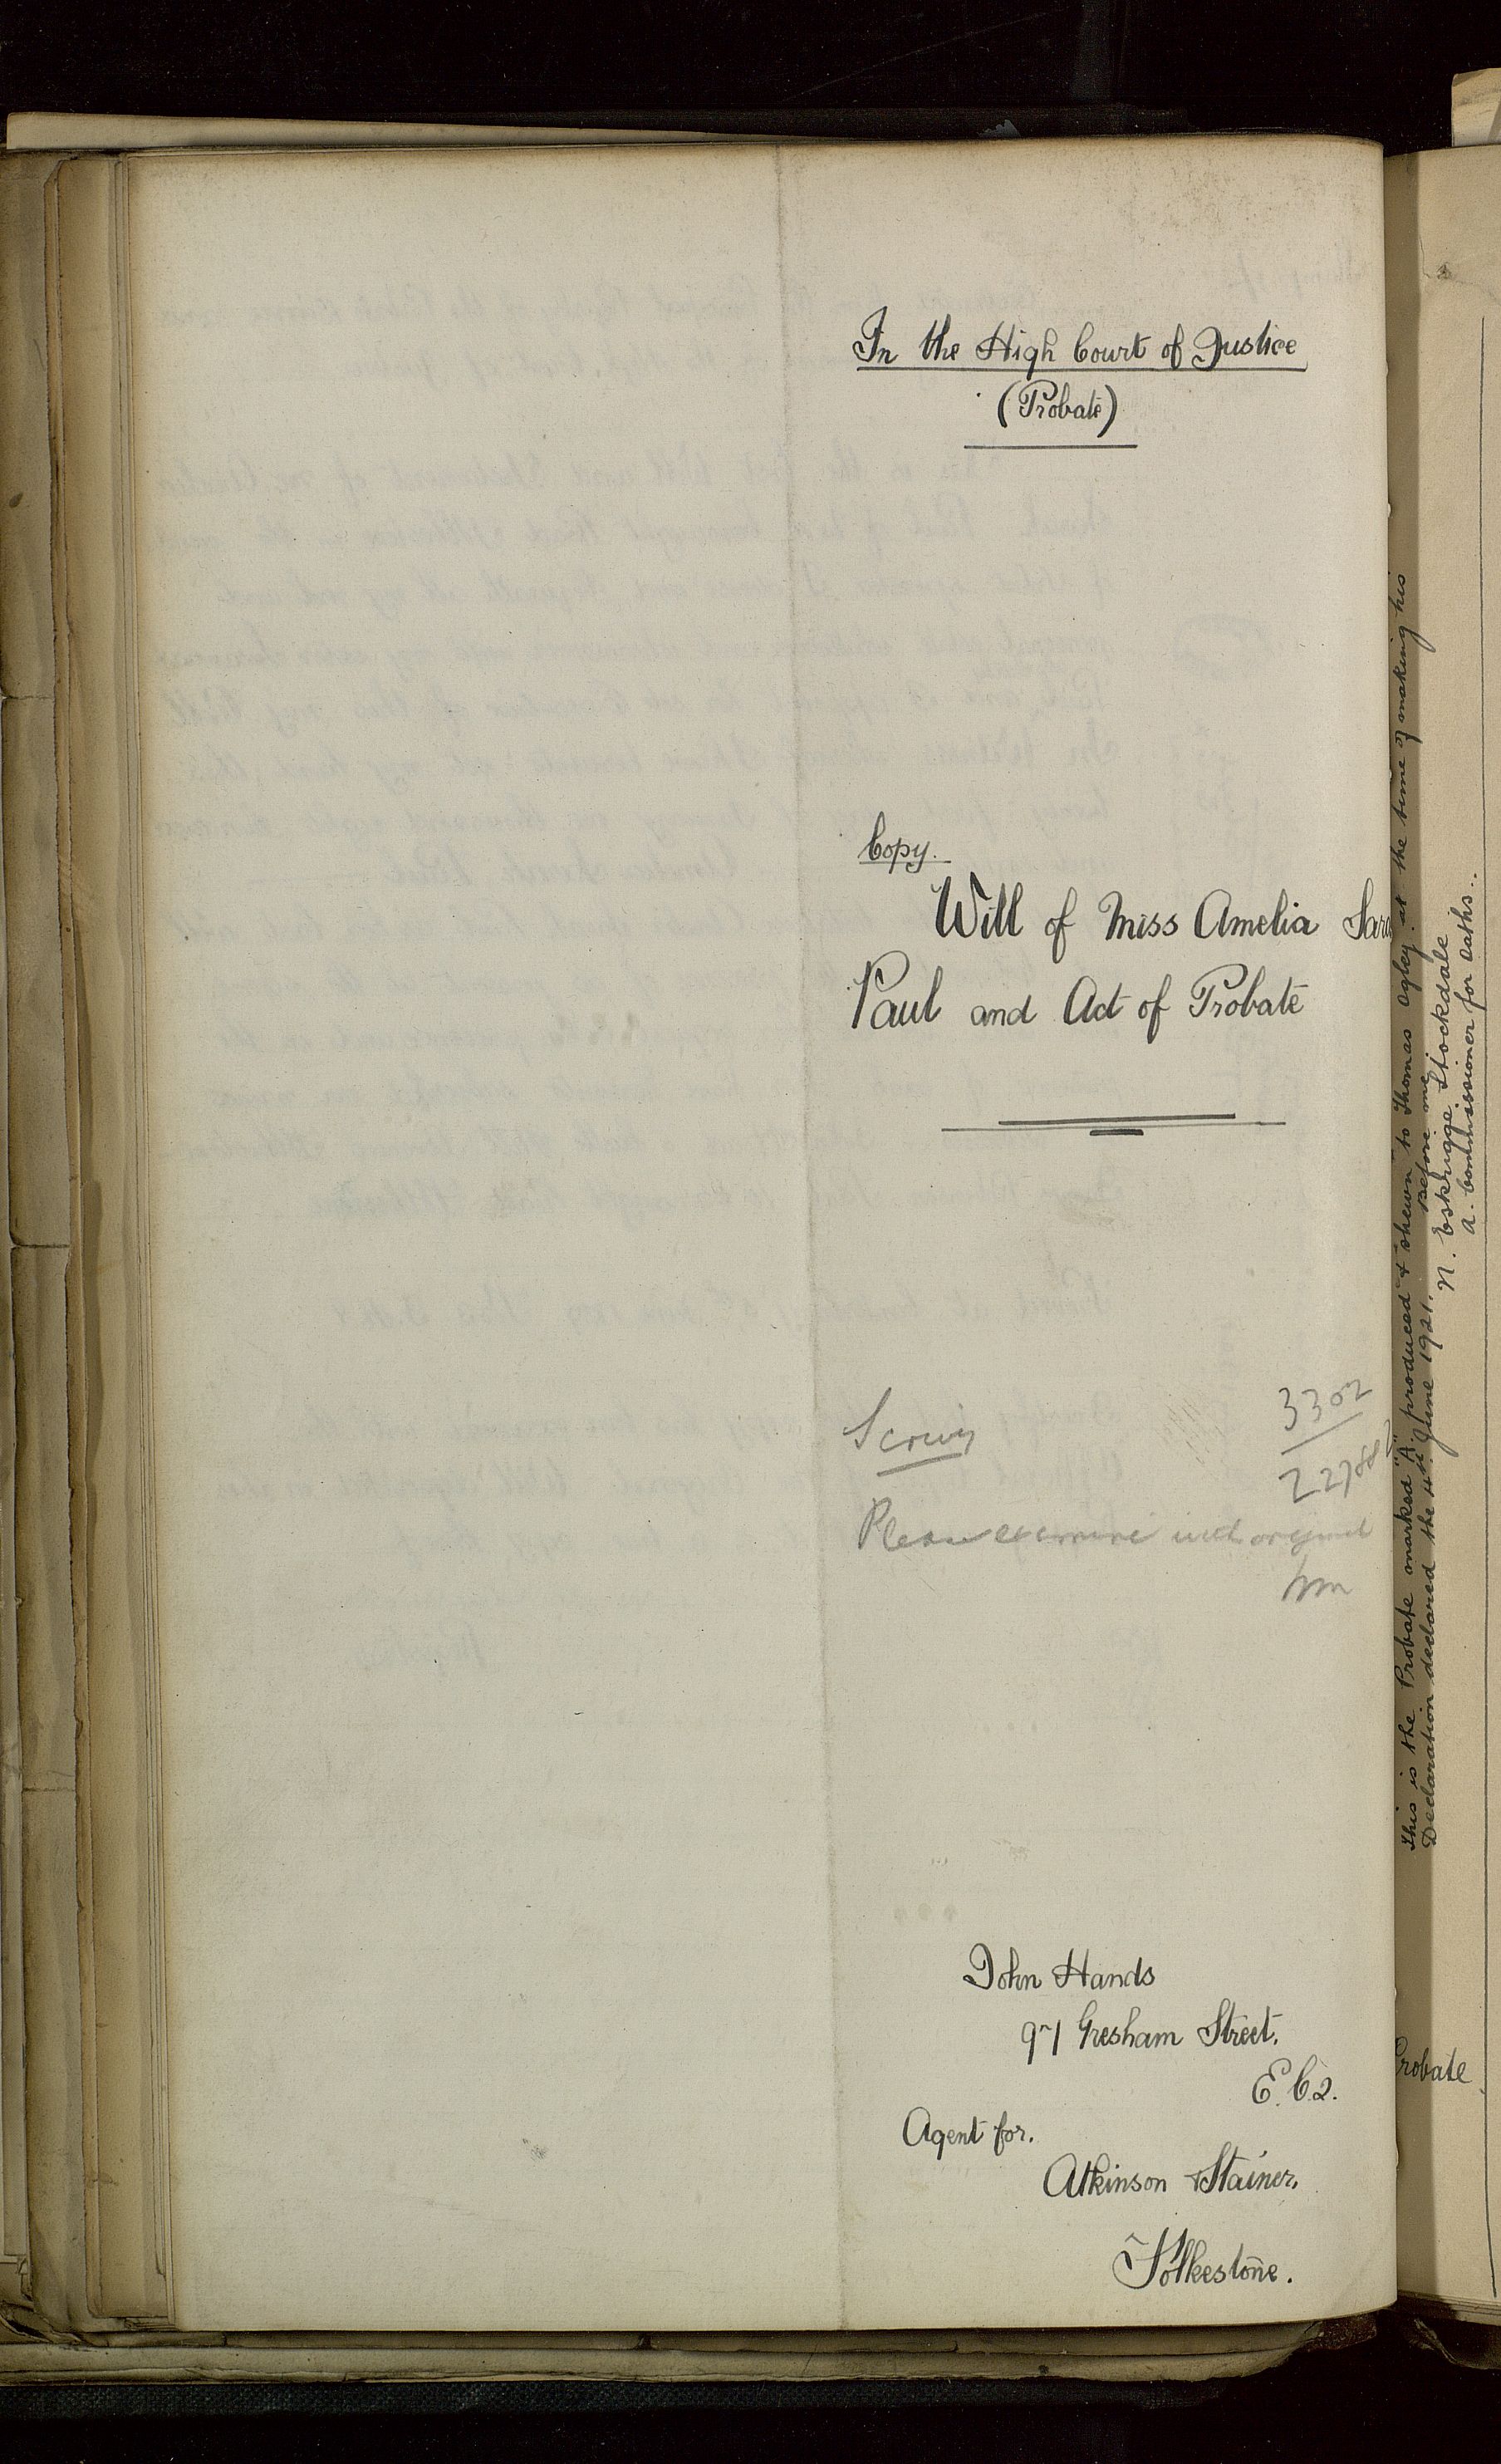 In the High Court of Justice
(Probate)
Copy.
Will of Miss Amelia Sara
Paul and Act of Probate
3302
Please examine with original
John Hands
97 Gresham Street.
E.C.2.
Agent for.
Atkinson & Stainer,
Folkestone.
This is the Probate marked "A" produced & shewn to Thomas Ogley at the time of making his
Declaration declared the 4th June 1921.
Before me,
N. Eskrigge Stockdale
a. Commissioner for Oaths..
Probate